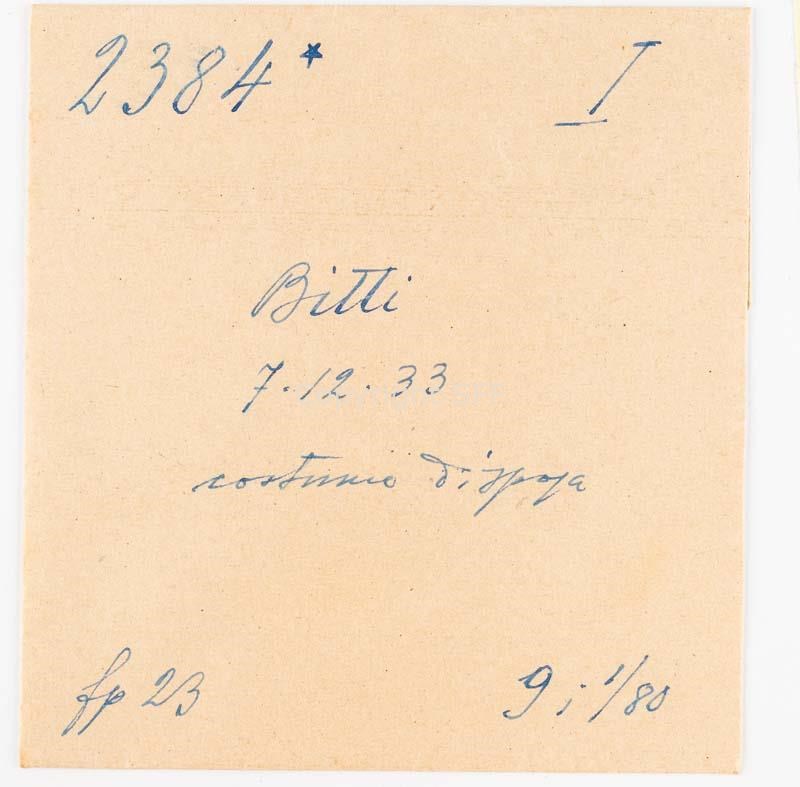 2384* I
Bitti
7.12.33
costume di spoja
fp 23 9; 1/80